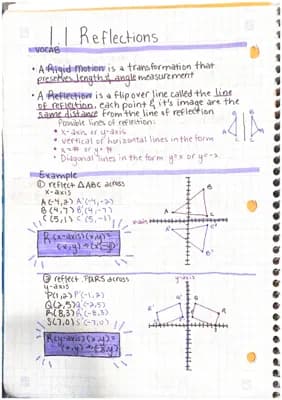 1.1 Reflections
VOCAB
• A Rigid Motion is a transformation that
preserves length & angle measurement
• A Reflection is a flip over line called the line
of reflection, each point & it's image are the
same distance from the line of reflection
Possible lines of refletion:
• x-axis or y-axis
• vertical or horizontal lines in the form
• x=# or y=#
• Diagonal lines in the form y=x or y=-x
Example
① reflect △ABC across
x-axis
A(-4,2) A'(-4,-2)
B(4,7) B'(4,-7)
C(5,1) C'(5,-1)
R(x-axis)(x,y)=
(x,y)→(x,-y)
x-axis
A
B
C
A'
C'
② reflect PQRS across
y-axis
P(1,2) P'(-1,2)
Q(2,5) Q'(-2,5)
R(8,3) R'(-8,3)
S(7,0) S'(-7,0)
R(y-axis)(x,y)=
(x,y)→(-x,y)
y-axis
Q'
Q
R